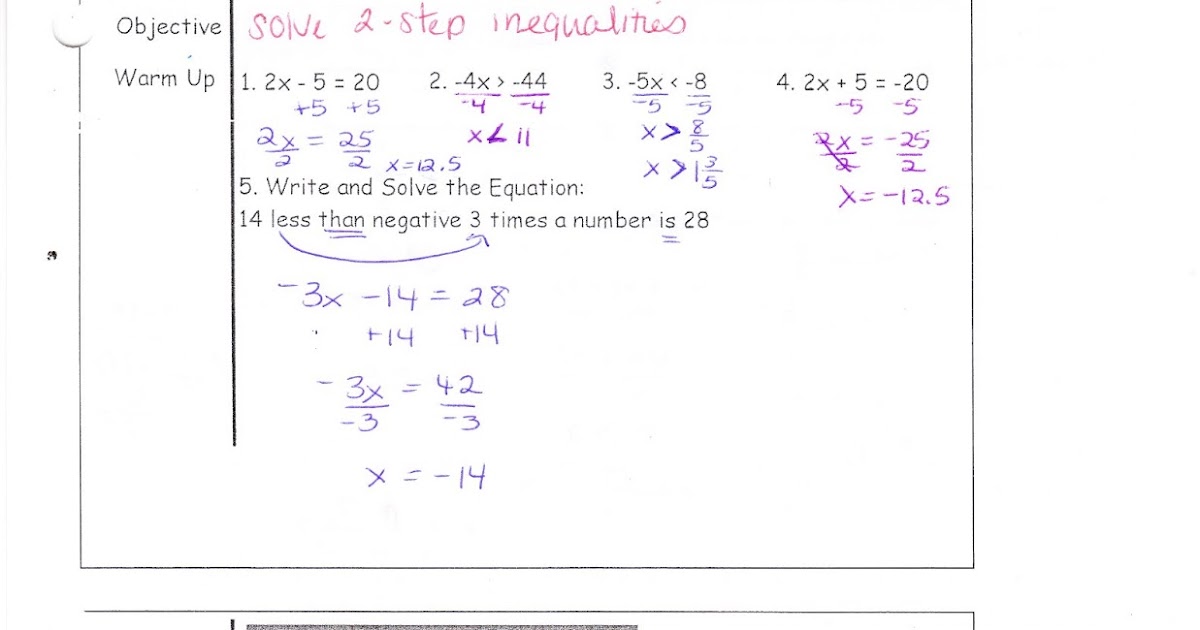 Objective Solve 2-step inequalities
Warm Up 1. 2x - 5 = 20 2. -4x > -44 3. -5x < -8 4. 2x + 5 = -20
+5 +5 -4 -4 -5 -5 -5 -5
2x = 25 x < 11 x > 8/5 2x = -25
2 2 x=12.5 x > 1 3/5 2 2
5. Write and Solve the Equation: x = -12.5
14 less than negative 3 times a number is 28
-3x - 14 = 28
+14 +14
-3x = 42
-3 -3
x = -14